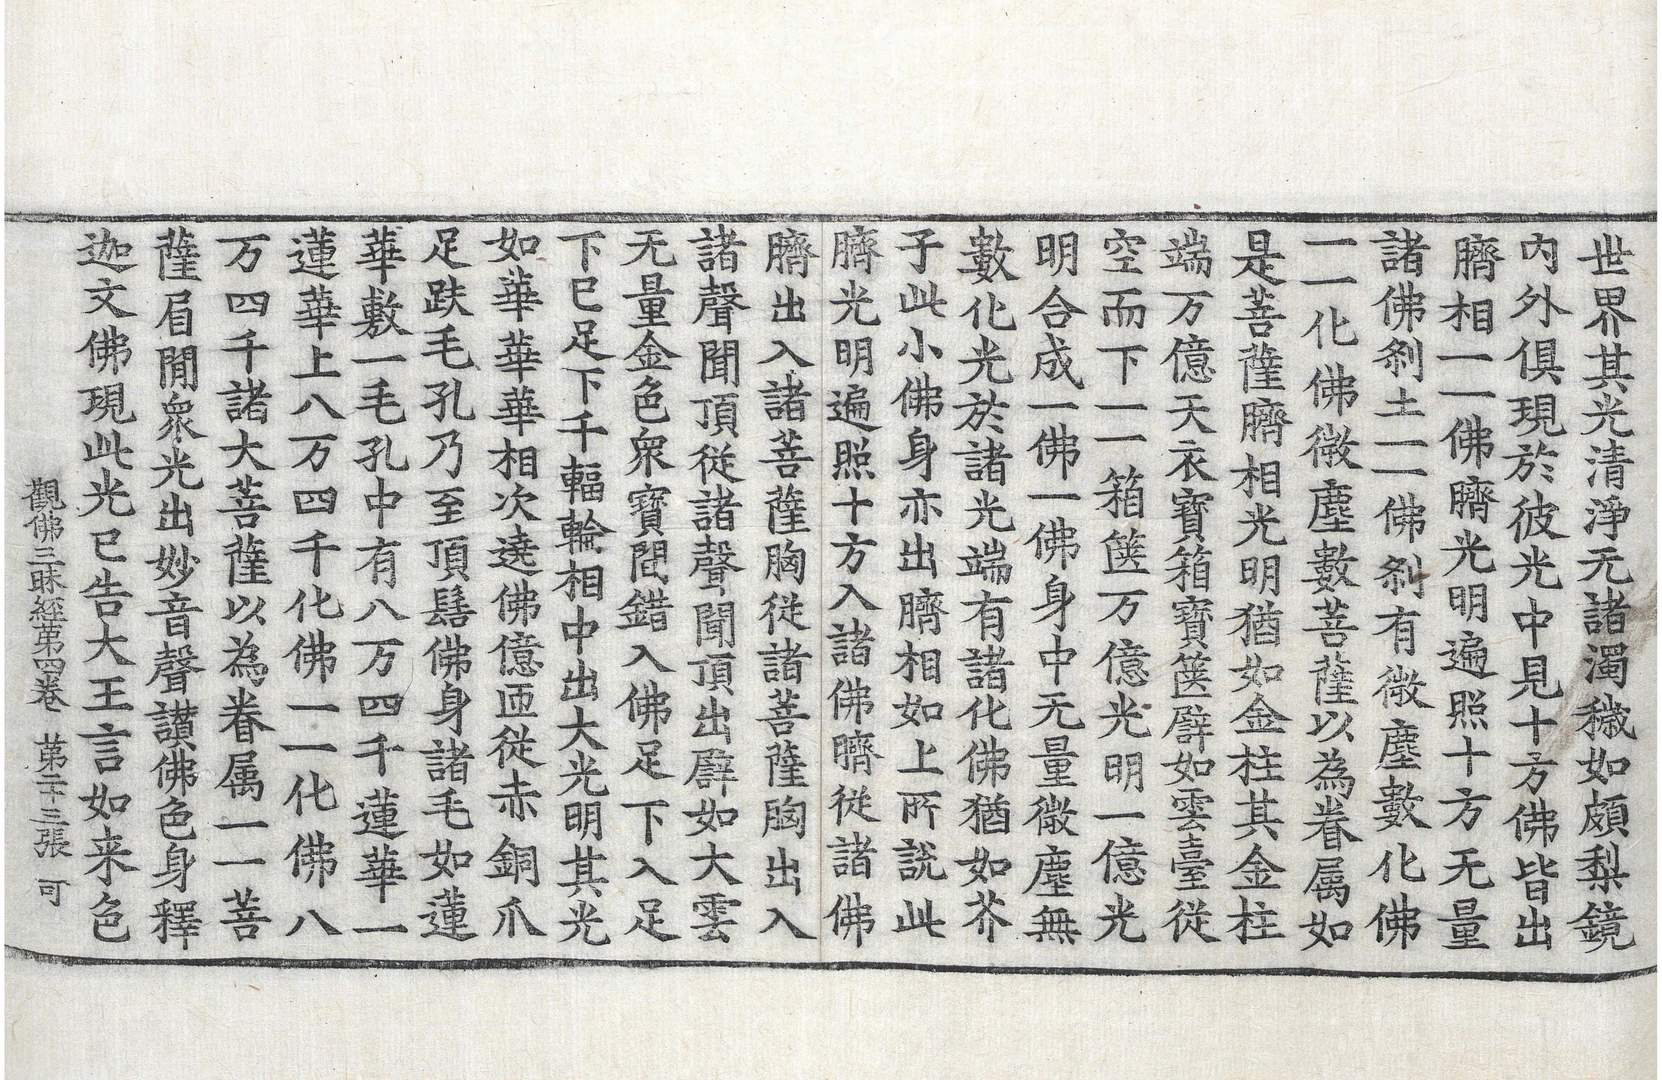 世界其光清淨无諸濁穢如頗梨鏡
内外俱現於彼光中見十方佛皆出
臍相一一佛臍光明遍照十方无量
諸佛刹土一一佛刹有微塵數化佛
一一化佛微塵數菩薩以為眷属如
是菩薩臍相光明猶如金柱其金柱
端万億天衣寶箱寶篋譬如雲臺從
空而下一一箱篋万億光明一億光
明合成一佛一佛身中无量微塵無
數化光於諸光端有諸化佛猶如芥
子此小佛身亦出臍相如上所說此
臍光明遍照十方入諸佛臍從諸佛
臍出入諸菩薩胸從諸菩薩胸出入
諸聲聞頂從諸聲聞頂出譬如大雲
无量金色衆寶間錯入佛足下入足
下已足下千輻輪相中出大光明其光
如華華華相次遶佛億匝從赤銅爪
足趺毛孔乃至頂髻佛身諸毛如蓮
華敷一毛孔中有八万四千蓮華一
蓮華上八万四千化佛一一化佛八
万四千諸大菩薩以為眷属一一菩
薩眉間衆光出妙音聲讃佛色身釋
迦文佛現此光已告大王言如来色
觀佛三昧經第四卷 第二十三張 可